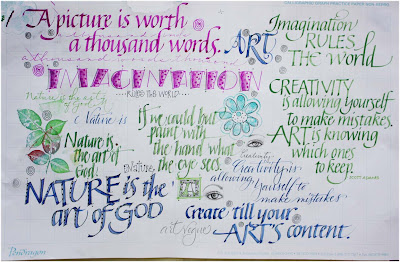 A picture is worth
a thousand words.
ART
Imagination
RULES
The world
IMAGINATION
RULES THE WORLD...
CREATIVITY
is allowing yourself
to make mistakes.
ART is knowing
which ones
to keep
SCOTT ADAMS
Nature is
Nature is
the art of
God.
If we could but
paint with
the hand what
the eye sees.
Nature
NATURE is the
art of GOD
Creativity
Creativity is
allowing yourself to
make mistakes
art
Create till your
ART'S content.
Pendragon